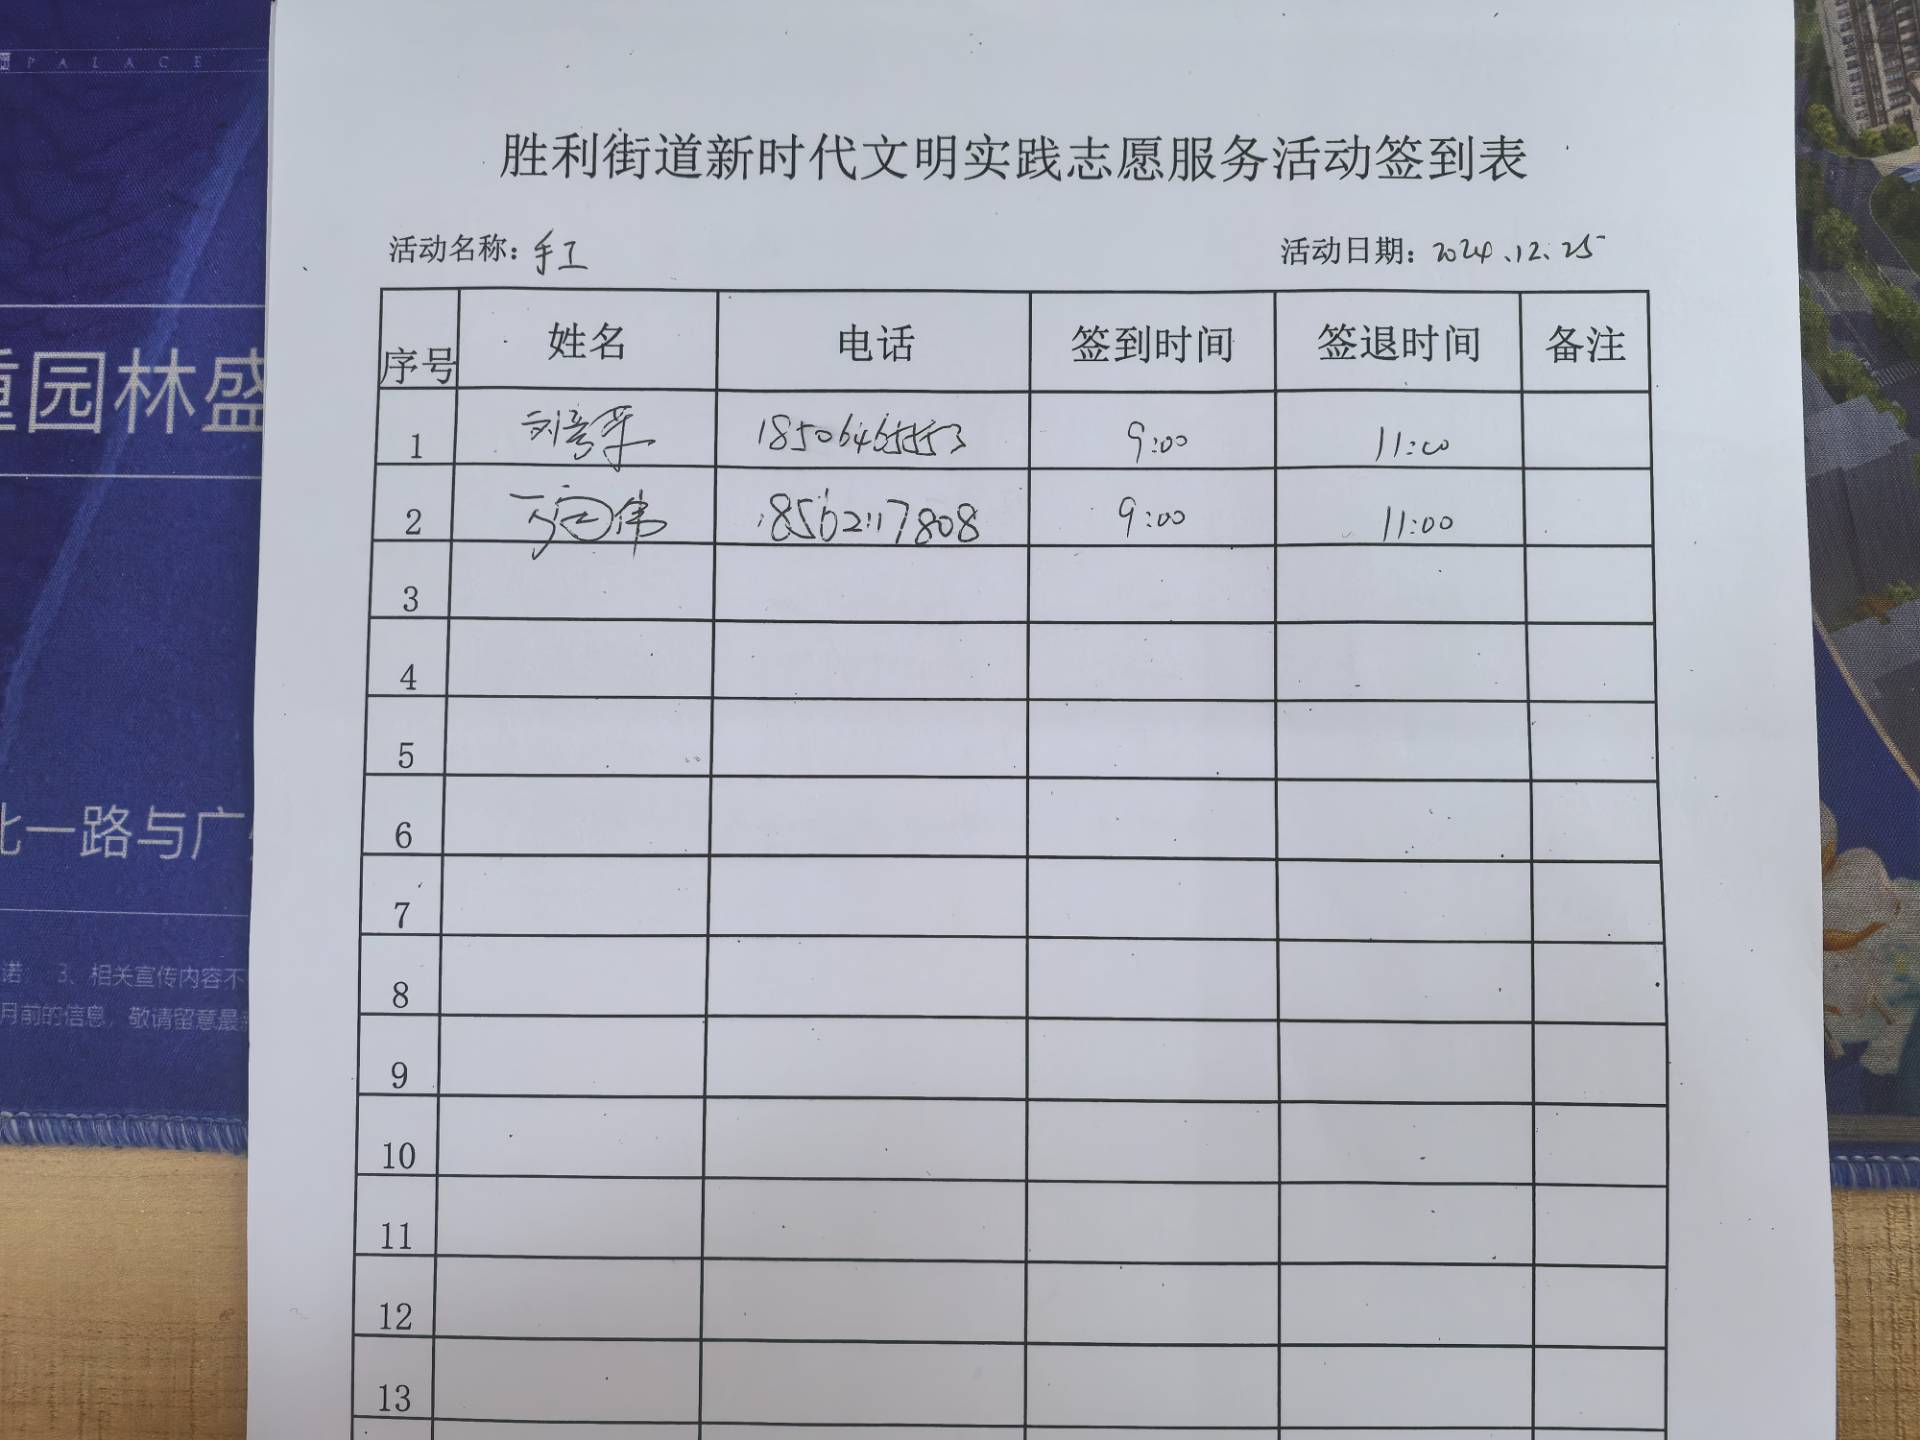 PALACE
重园林盛
北一路与广
诺 3、相关宣传内容不
月前的信息，敬请留意最新
胜利街道新时代文明实践志愿服务活动签到表
活动名称：手工 活动日期：2024.12.25
序号 姓名 电话 签到时间 签退时间 备注
1 刘 9:00 11:00
2 伟 18562117808 9:00 11:00
3
4
5
6
7
8
9
10
11
12
13